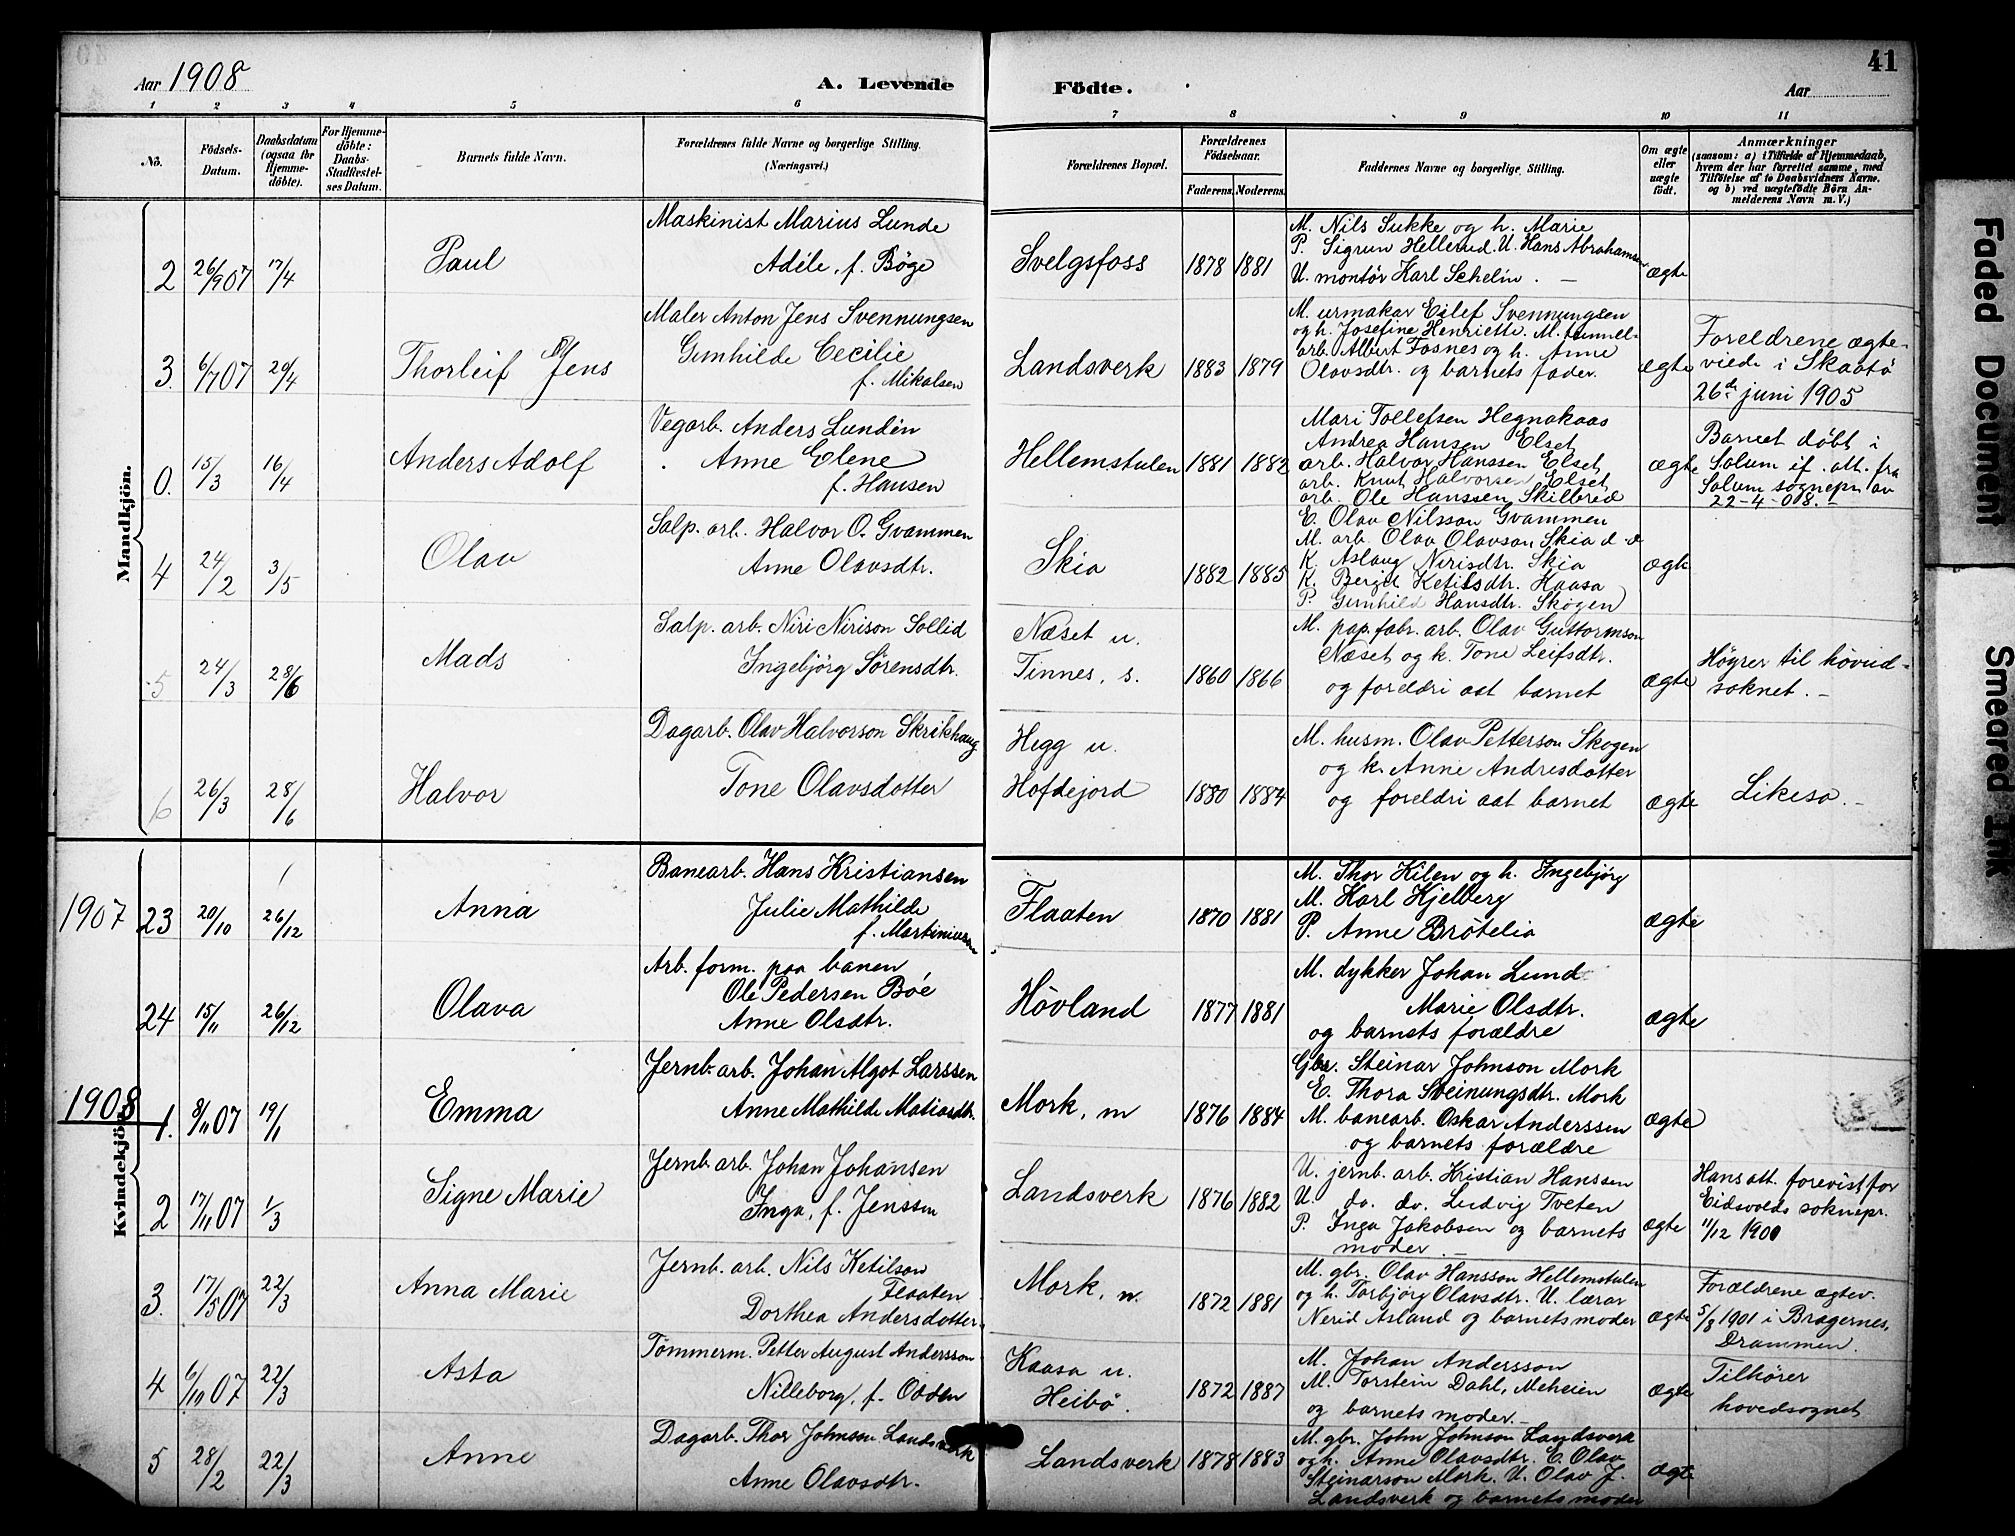 41
Aar 1908
A. Levende
Födte.
Aar
1 2 3 4 5 6 7 8 9 10 11
No.
Födsels-
Datum.
Daabsdatum
(ogsaa for
Hjemme-
döbte).
For Hjemme-
döbte:
Daabs-
Stadfæstel-
ses Datum.
Barnets fulde Navn.
Forældrenes fulde Navne og borgerlige Stilling.
(Næringsvei.)
Forældrenes Bopæl.
Forældrenes
Födselsaar.
Faderens. Moderens.
Faddernes Navne og borgerlige Stilling.
Om ægte
eller
uægte
født.
Anmærkninger
(saasom: a) i Tilfælde af Hjemmedaab,
hvem der har forrettet samme, med
Tilföielse af to Daabsvidners Navne.
og b) ved uægtefödte Börn An-
melderens Navn m. V.)
Mandkjön.
2 26/9 07 17/4
Paul
Maskinist Marius Lunde
Adéle, f. Böge
Svelgsfoss
1878 1881
M. Nils Sukke og h. Marie
P. Sigrun Hellerud. U. Hans Abrahamsen
U. montör Karl Schelin. —
ægte
3. 6/7 07 20/4
Thorleif Jens
Maler Anton Jens Svennungsen
Gunhilde Cecilie
f. Mikalsen
Landsverk
1883 1879
M. urmakar Eilef Svennungsen
og h. Josefine Henriette. M. tunnel-
arb. Albert Fosnes og h. Anne
Olavsdtr. og barnets fader.
ægte
Foreldrene ægte-
viede i Skaatö
26de juni 1905
0. 15/3 16/4
Anders Adolf
Vegarb. Anders Lundén
Anne Elene
f. Hansen
Hellemstulen
1881 1882
Mari Tollefsen Hegnakaas
Andrea Hansen Elset
arb. Halvor Hanssen Elset
arb. Knut Halvorsen Elset
arb. Ole Hanssen Skilbred
ægte
Barnet döbt i
Solum if. att. fra
Solum sognepr. av
22-4-08. –
4 24/2 3/5
Olav
Salp. arb. Halvor O. Gvammen
Anne Olavsdtr.
Skia
1882 1885
E. Olav Nilsson Gvammen
M. arb. Olav Olavson Skia d. e
K. Aslaug Nirisdtr. Skia
K. Bergit Ketilsdtr. Haasa
P. Gunhild Hansdtr. Skogen
ægte
5 24/3 28/6
Mads
Salp. arb. Niri Nirison Sollid
Ingebjörg Sörensdtr.
Næset u.
Tinnes, s.
1860 1866
M. pap. fabr. arb. Olav Guttormson
Næset og k. Tone Leifsdtr.
og foreldri aat barnet
ægte
Höyrer til hövud-
soknet. –
6 26/3 28/6
Halvor
Dagarb. Olav Halvorson Skrikhaug
Tone Olavsdotter
Hegg u.
Hofdejord
1880 1884
M. husm. Olav Petterson Skogen
og k. Anne Andresdotter
og foreldri aat barnet
ægte
Likeso. –
Kvindekjön.
1907
23 20/10 26/12
Anna
Banearb. Hans Kristiansen
Julie Mathilde
f. Martiniusen
Flaaten
1870 1881
M. Thor Kilen og h. Ingebjörg
M. Karl Kjelberg
P. Anne Brötelia
ægte
24 15/11 26/12
Olava
Arb. form. paa banen
Ole Pedersen Böe
Anne Olsdtr.
Hövland
1877 1881
M. dykker Johan Lund
Marie Olsdtr.
og barnets forældre
ægte
1908
1. 8/11 07 19/1
Emma
Jernb. arb. Johan Algot Larssen
Anne Mathilde Matiasdtr.
Mork, n
1876 1884
Gbr. Steinar Johnson Mork
E. Thora Steinungsdtr. Mork
M. banearb. Oskar Anderssen
og barnets forældre
ægte
2 17/11 07 1/3
Signe Marie
Jernb. arb. Johan Johansen
Inga, f. Jenssen
Landsverk
1876 1882
U. jernb. arb. Kristian Hanssen
U. do. do. Ludvig Tveten
P. Inga Jakobsen og barnets
moder. –
ægte
Hans att. forevist for
Eidsvolds soknepr.
11/12 1900
3. 17/5 07 22/3
Anna Marie
Jernb. arb. Nils Ketilson
Flaaten
Dorthea Andersdotter
Mork, n.
1872 1881
M. gbr. Olav Hansson Hellemstulen
og h. Torbjörg Olavsdtr. U. lærar
Nerid Asland og barnets moder
ægte
Forældrene ægtev.
5/8 1901 i Bragernes,
Drammen.
4 6/10 07 22/3
Asta
Tömmerm. Petter August Andersson
Nilleborg, f. Odden
Kaasa u.
Heibö.
1872 1887
M. Johan Andersson
M. Torstein Dahl, Meheien
og barnets moder. –
ægte
Tilhörer
hovedsognet
5 28/2 22/3
Anne
Dagarb. Thor Johnsen Landsverk
Anne Olavsdtr.
Landsverk
1878 1883
M. gbr. John Johnson Landsverk
og h. Anne Olavsdtr. E. Olav
Steinarson Mork. U. Olav J.
Landsverk og barnets moder
ægte
Faded Document
Smeared Ink